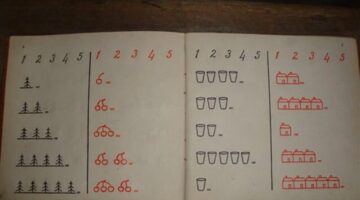 1 2 3 4 5
1 2 3 4 5
1 2 3 4 5
1 2 3 4 5